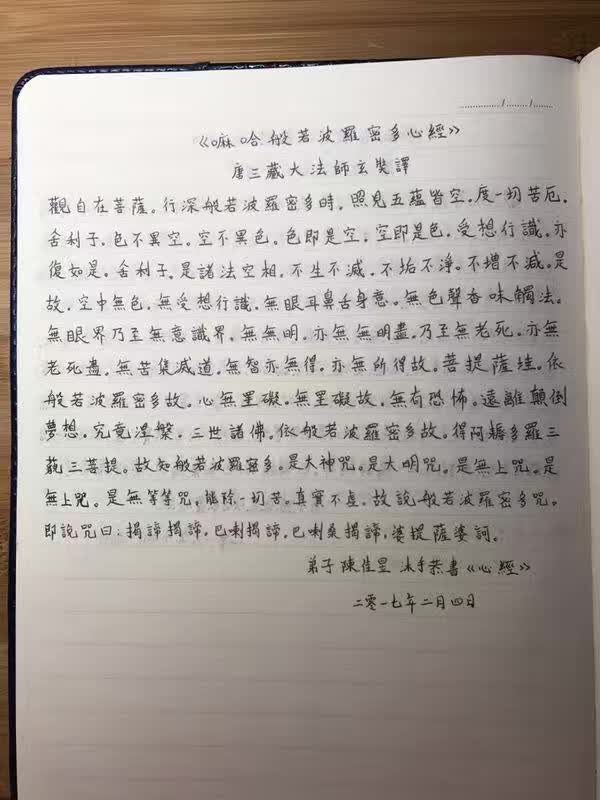 ............/......../.......
《嘛哈般若波羅密多心經》
唐三藏大法師玄奘譯
觀自在菩薩。行深般若波羅密多時。照見五蘊皆空。度一切苦厄。
舍利子。色不異空。空不異色。色即是空。空即是色。受想行識。亦
復如是。舍利子。是諸法空相。不生不滅。不垢不淨。不增不減。是
故。空中無色。無受想行識。無眼耳鼻舌身意。無色聲香味觸法。
無眼界乃至無意識界。無無明。亦無無明盡。乃至無老死。亦無
老死盡。無苦集滅道。無智亦無得。亦無所得故。菩提薩埵。依
般若波羅密多故。心無罣礙。無罣礙故。無有恐怖。遠離顛倒
夢想。究竟涅槃。三世諸佛。依般若波羅密多故。得阿耨多羅三
藐三菩提。故知般若波羅密多。是大神咒。是大明咒。是無上咒。是
無上咒。是無等等咒。能除一切苦。真實不虛。故說般若波羅密多咒。
即說咒曰：揭諦揭諦。巴喇揭諦。巴喇桑揭諦。婆提薩婆訶。
弟子陳佳昱 沐手恭書《心經》
二零一七年二月四日